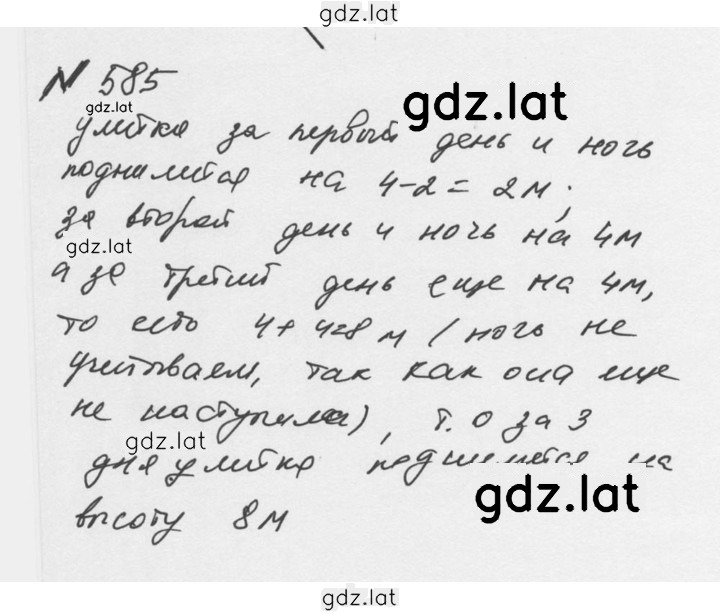 gdz.lat
№ 585
gdz.lat
gdz.lat
улитка за первый день и ночь
поднимется на 4-2 = 2м;
за второй день и ночь на 4м
gdz.lat
а за третий день еще на 4м,
то есть 4+4=8 м (ночь не
учитываем, так как она еще
не наступила), т.о за 3
gdz.lat
дня улитка поднимется на
gdz.lat
высоту 8м
gdz.lat